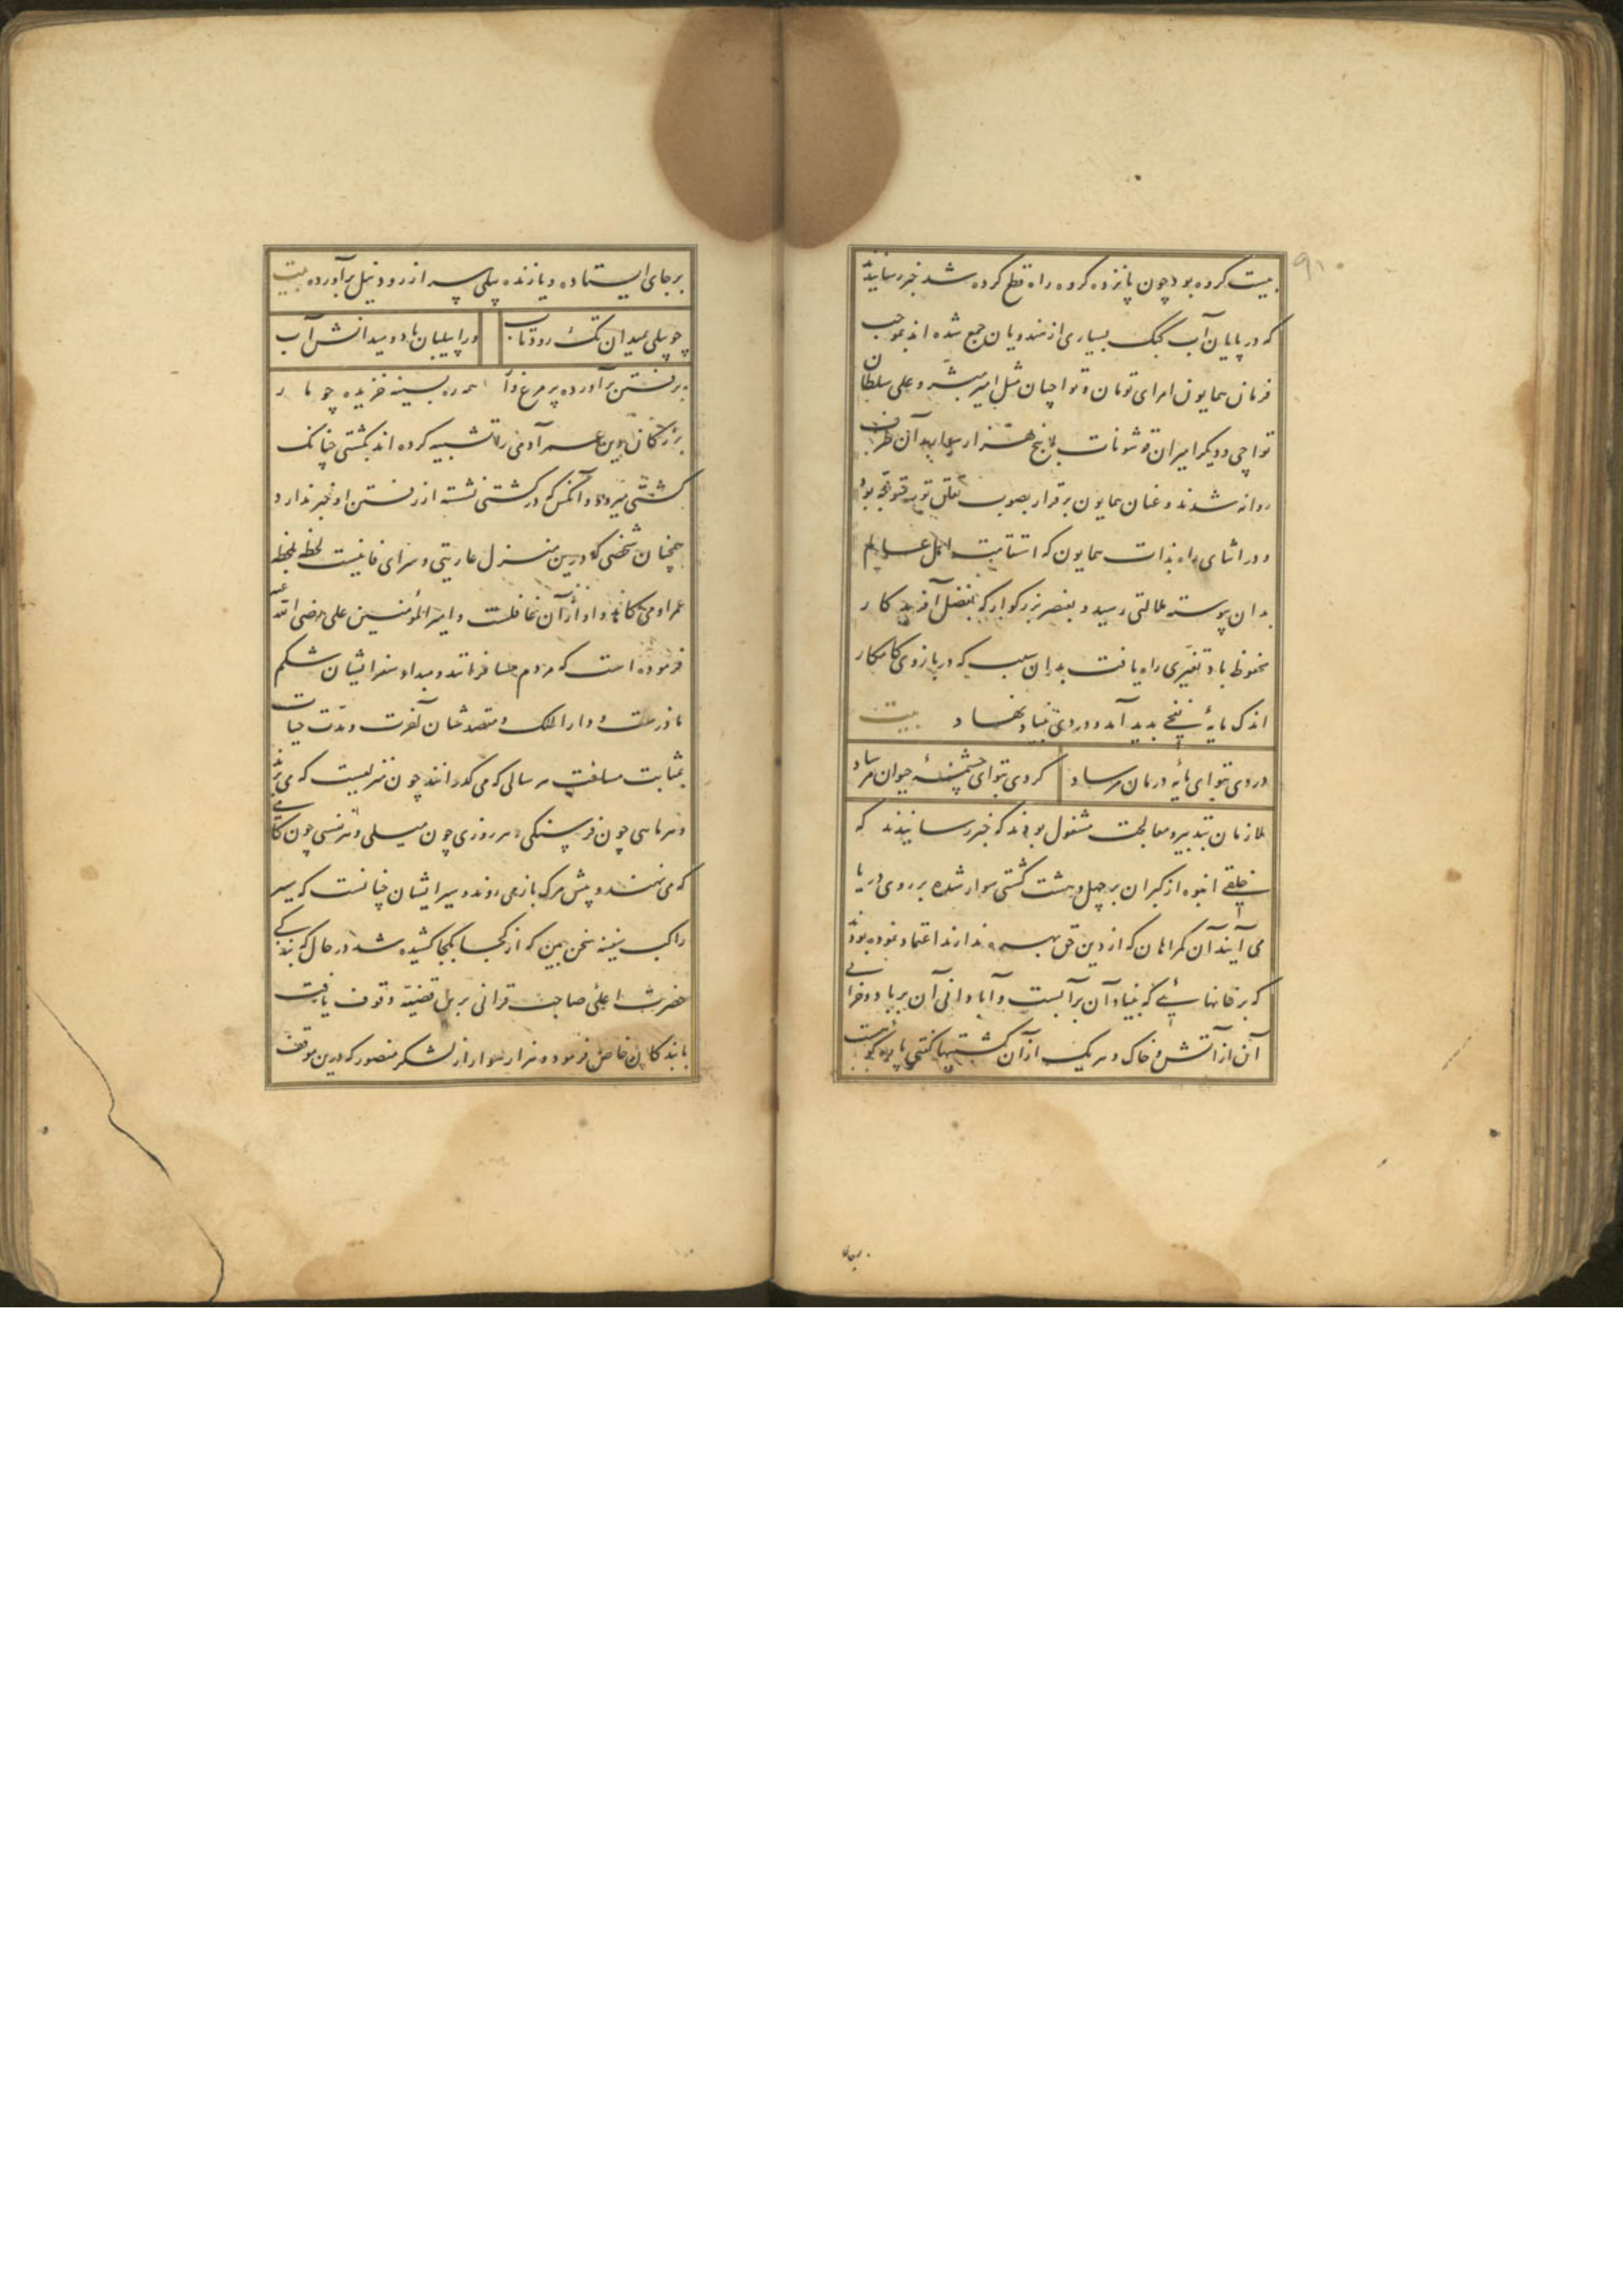 ۹۱
بیست کروه بود چون پانزده کروه راه قطع کرده شد خبر رسانیدند
که در پایان آب گنگ بسیاری از هندویان جمع شده اند بموجب
فرمان همایون امرای تومان و تواچیان مثل امیر مبشر و علی سلطان
تواچی و دیگر امیران قوشونات با پنج هزار سوار بدان طرف
روانه شدند و عنان همایون برقرار بصوب تغلق پور
و در اثنای راه بذات همایون که استقامت عالم
بدان پیوسته ملالتی رسید و بعنصر بزرگوار که بفضل آفریدگار
محفوظ باد تغیری راه یافت بدان سبب که در بازوی کامکار
اندک مایهٔ نفخی بدید آمد و دردی بنیاد نهاد بیت
دردی بتو ای مایهٔ درمان مرساد
گردی بتو ای چشمهٔ حیوان مرساد
ملازمان بتدبیر و معالجت مشغول بودند که خبر رسانیدند که
خلقی انبوه از گبران بر چهل و هشت کشتی سوار شده بر روی دریا
می آیند آن گمراهان که از دین حق بهره ندارند اعتماد نموده بودند
که بر خانهائی که بنیاد آن بر آبست و آبادانی آن بر باد و خرابی
آن از آتش و خاک و هر یک از آن کشتیها گفتی پاره کوهست
برجای
بر جای ایستاده و یا زنده پیلی سر از رود نیل برآورده بیت
چو پیلی بمیدان تگ رود تاب
ورا پیلبان باد و میدانش آب
برفتن برآورده پر مرغ وار همه ره بسینه خزیده چو مار
بزرگان دین عمر آدمی را تشبیه کرده اند بکشتی چنانک
کشتی میرود و آنکس که در کشتی نشسته از رفتن او خبر ندارد
همچنان شخصی که درین منزل عاریتی و سرای فانیست لحظه بلحظه
عمر او می کاهد و او از آن غافلست و امیر المؤمنین علی رضی الله عنه
فرموده است که مردم مسافرانند و مبداء سفر ایشان شکم
مادرست و دار الملک و مقصد شان آخرت و مدت حیات
بمثابت مسافت هر سالی که می گذرانند چون منزلیست که می
و هر ماهی چون فرسنگی و هر روزی چون میلی و هر نفسی چون گامی
که می نهند و پیش مرگ باز می روند و سیر ایشان چنانست که سیر
راکب سفینه سخن بین که از کجا بکجا کشیده شد در حال که بندگی
حضرت اعلی صاحب قرانی بر این قضیه وقوف یافت
با بندگان خاص فرمود و هزار سوار از لشکر منصور که درین موقف